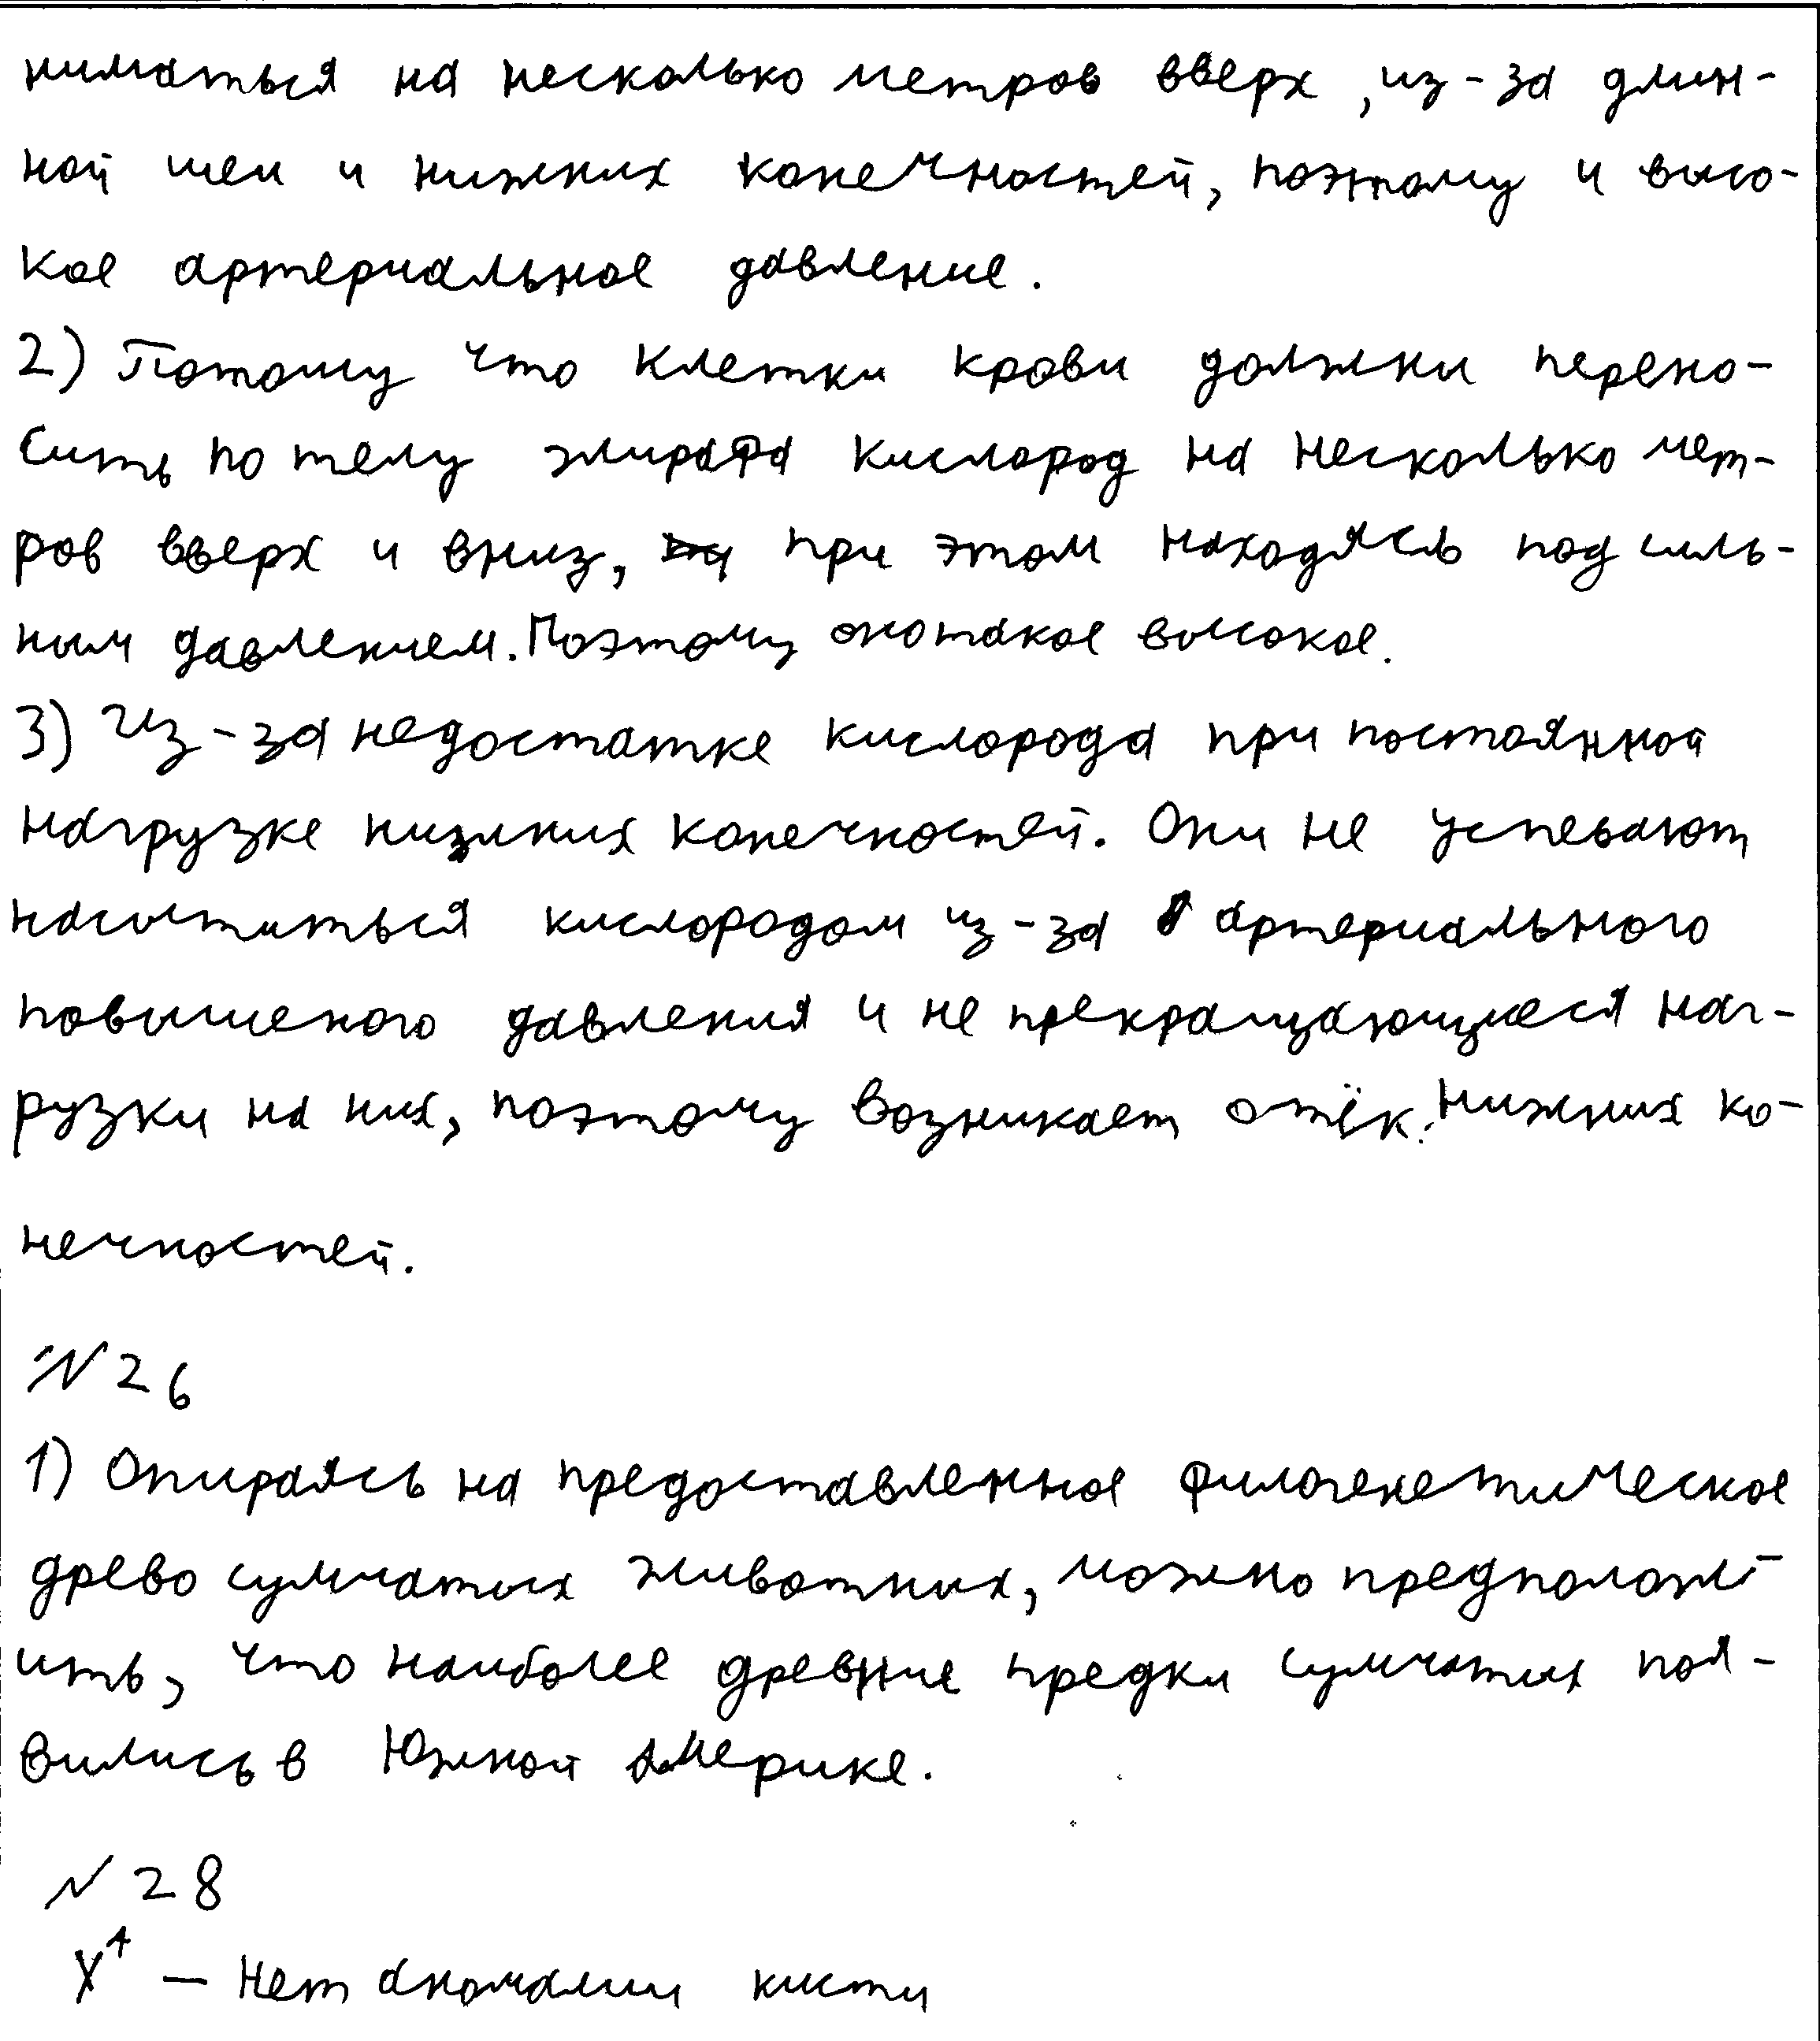 ниматься на несколько метров вверх, из-за длин-
ной шеи и нижних конечностей, поэтому и высо-
кое артериальное давление.
2) Потому что клетки крови должны перено-
сить по телу жирафа кислород на несколько мет-
ров вверх и вниз, при этом находясь под силь-
ным давлением. Поэтому оно такое высокое.
3) Из-за недостатке кислорода при постоянной
нагрузке нижних конечностей. Они не успевают
насытиться кислородом из-за артериального
повышеного давления и не прекращающиеся наг-
рузки на них, поэтому возникает отёк нижних ко-
нечностей.
№26
1) Опираясь на предоставленное филогенетическое
древо сумчатых животных, можно предполож-
ить, что наиболее древние предки сумчатых поя-
вились в Южной Америке.
№28
X^A — Нет аномалии кисти